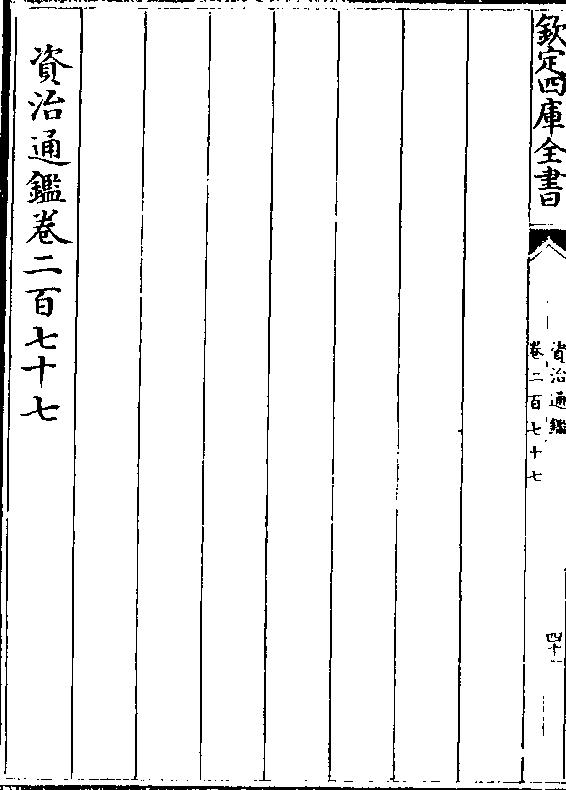 欽定四庫全書
資治通鑑
卷二百七十七
四十一
資治通鑑卷二百七十七